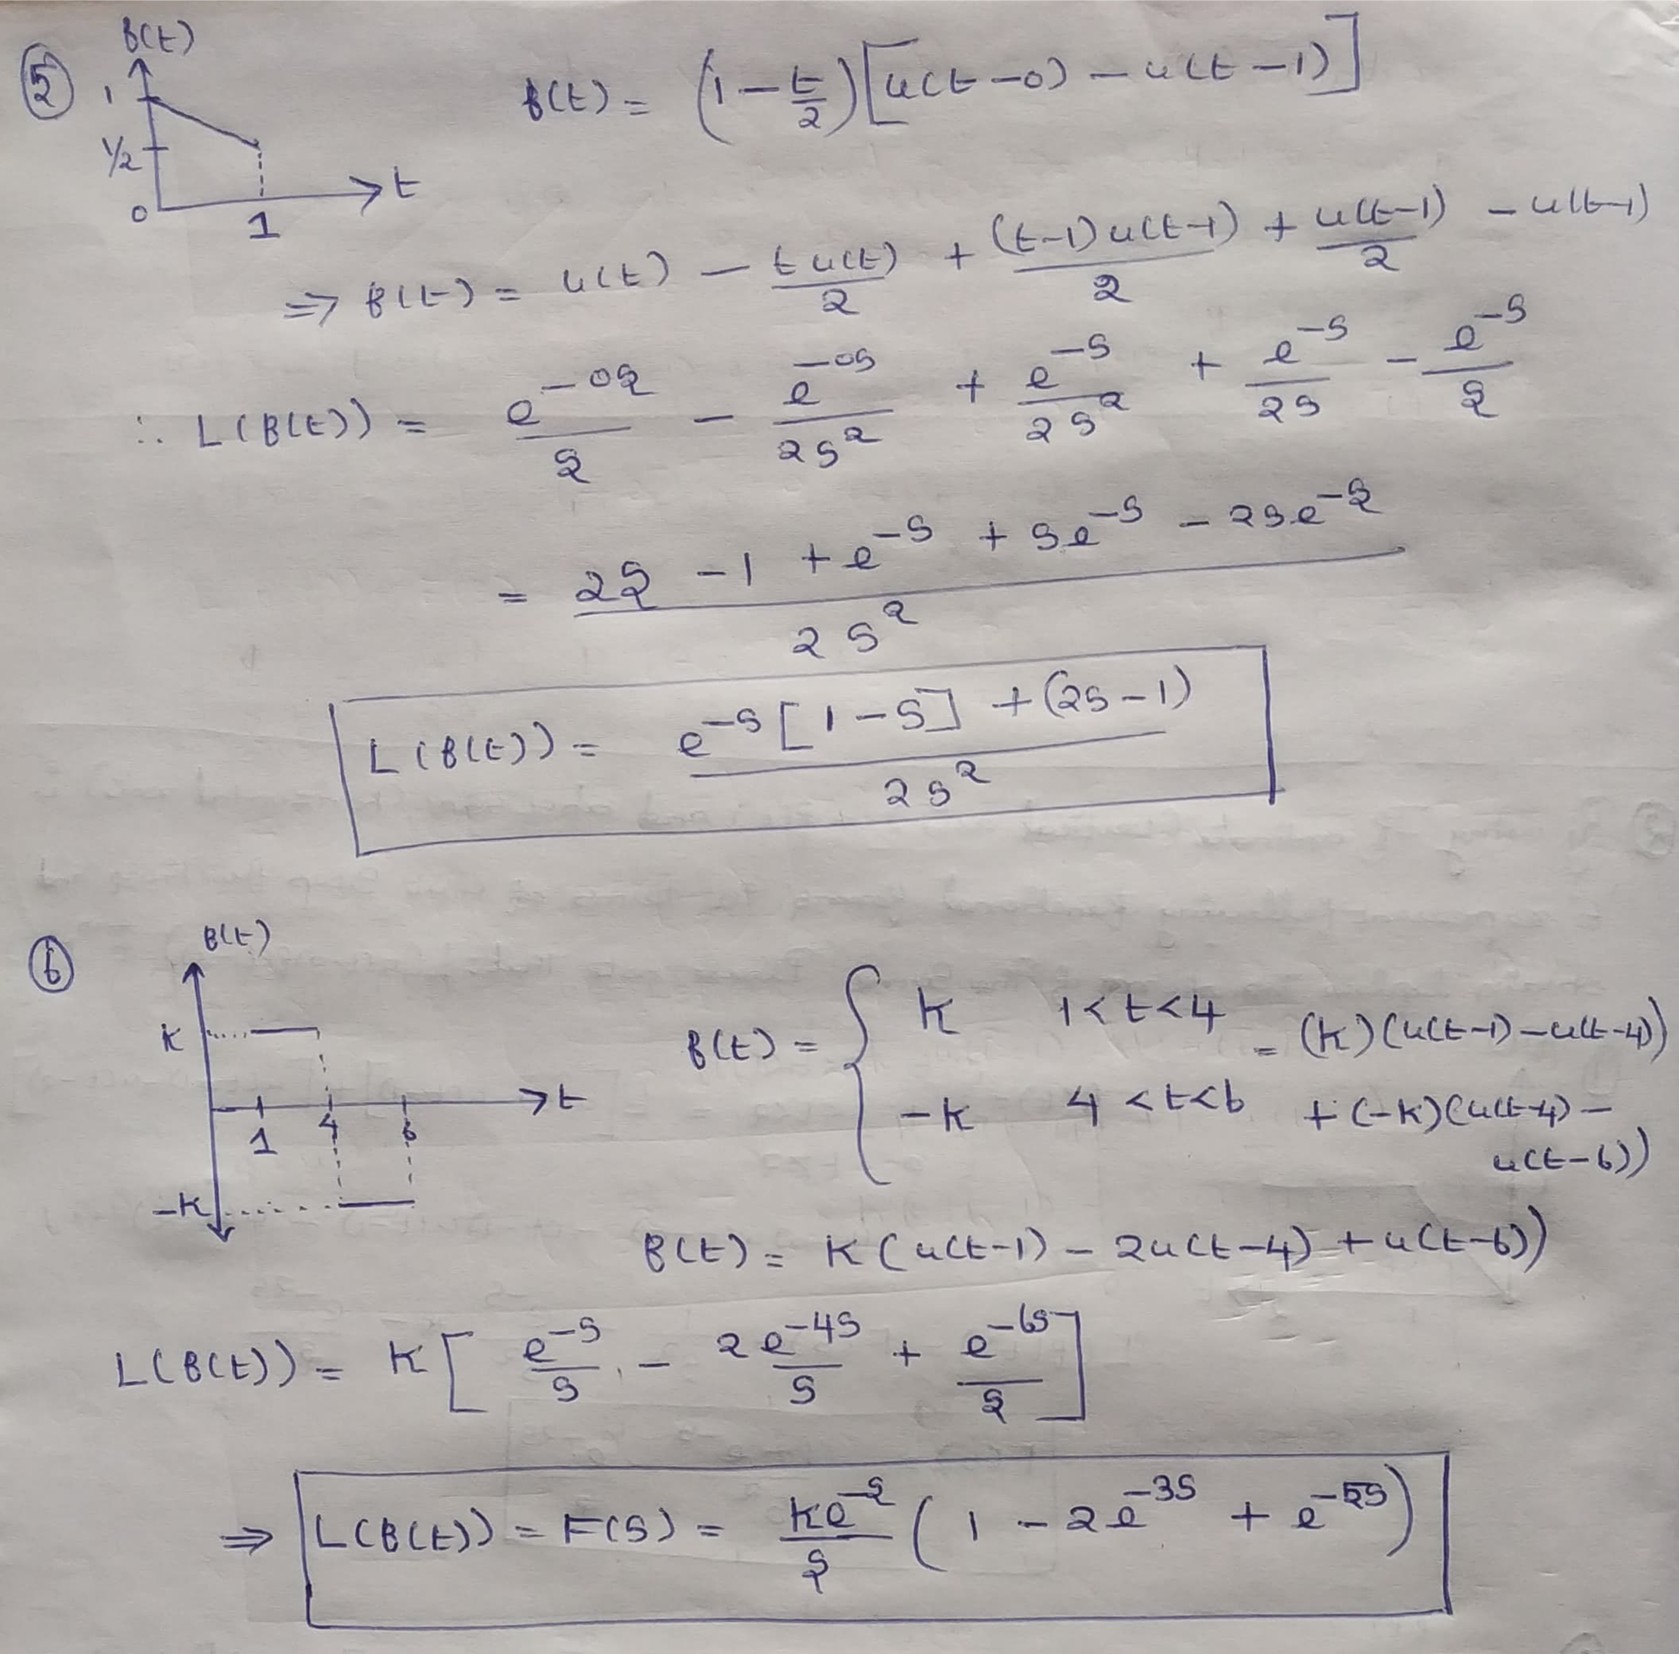 ⑤ f(t)
1
1/2
0 1 t
f(t) = (1 - t/2)[u(t-0) - u(t-1)]
⇒ f(t) = u(t) - tu(t)/2 + (t-1)u(t-1)/2 + u(t-1)/2 - u(t-1)
∴ L(f(t)) = e^{-0s}/s - e^{-0s}/2s² + e^{-s}/2s² + e^{-s}/2s - e^{-s}/s
= (2s - 1 + e^{-s} + se^{-s} - 2se^{-s})/2s²
L(f(t)) = (e^{-s}[1-s] + (2s-1))/2s²
⑥ f(t)
K
1 4 6 t
-K
f(t) = { K 1<t<4 = (K)(u(t-1)-u(t-4))
-K 4<t<6 + (-K)(u(t-4) -
u(t-6))
f(t) = K(u(t-1) - 2u(t-4) + u(t-6))
L(f(t)) = K[e^{-s}/s - 2e^{-4s}/s + e^{-6s}/s]
⇒ L(f(t)) = F(s) = Ke^{-s}/s (1 - 2e^{-3s} + e^{-5s})